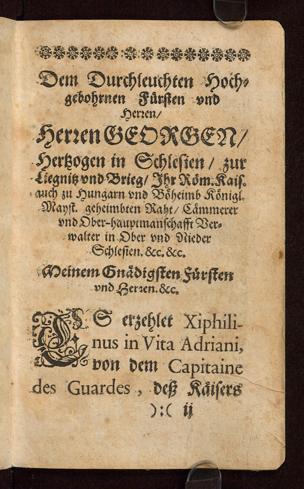 Dem Durchleuchten Hoch-
gebohrnen Fürsten vnd
Herren/
Herren GEORGEN/
Hertzogen in Schlesien/ zur
Liegnitz vnd Brieg/ Ihr Röm. Kais.
auch zu Hungarn vnd Böheimb Königl.
Mayst. geheimbten Raht/ Cämmerer
vnd Ober-hauptmanschafft Ver-
walter in Ober vnd Nieder
Schlesien. &c. &c.
Meinem Gnädigsten Fürsten
vnd Herren. &c.
ES erzehlet Xiphili-
nus in Vita Adriani,
von dem Capitaine
des Guardes, deß Käisers
):( ij